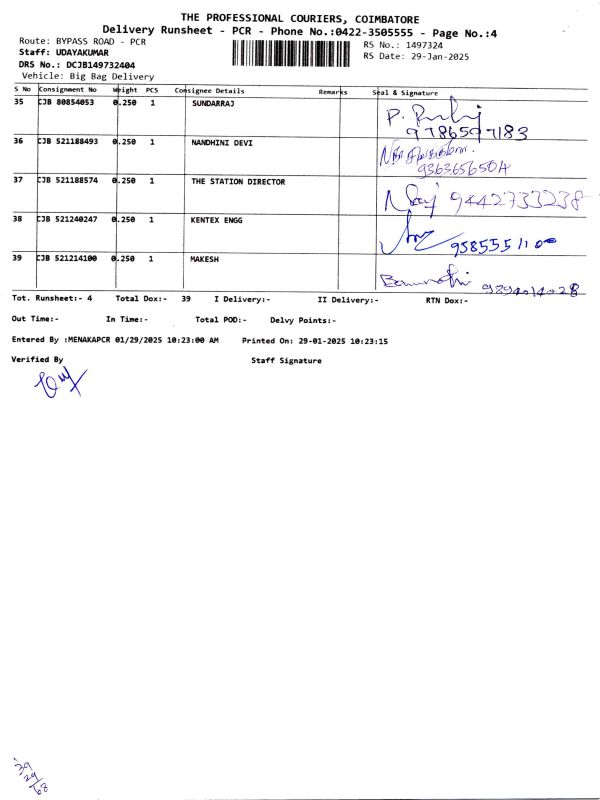 THE PROFESSIONAL COURIERS, COIMBATORE
Delivery Runsheet - PCR - Phone No.:0422-3505555 - Page No.:4
Route: BYPASS ROAD - PCR
RS No.: 1497324
Staff: UDAYAKUMAR
RS Date: 29-Jan-2025
DRS No.: DCJB149732404
Vehicle: Big Bag Delivery
S No Consignment No Weight PCS Consignee Details Remarks Seal & Signature
35 CJB 80854053 0.250 1 SUNDARRAJ
9786597183
36 CJB 521188493 0.250 1 NANDHINI DEVI
9363656504
37 CJB 521188574 0.250 1 THE STATION DIRECTOR 9442733238
38 CJB 521240247 0.250 1 KENTEX ENGG
9585551100
39 CJB 521214100 0.250 1 MAKESH
9894014028
Tot. Runsheet:- 4 Total Dox:- 39 I Delivery:- II Delivery:- RTN Dox:-
Out Time:- In Time:- Total POD:- Delvy Points:-
Entered By :MENAKAPCR 01/29/2025 10:23:00 AM Printed On: 29-01-2025 10:23:15
Verified By Staff Signature
39
29/68